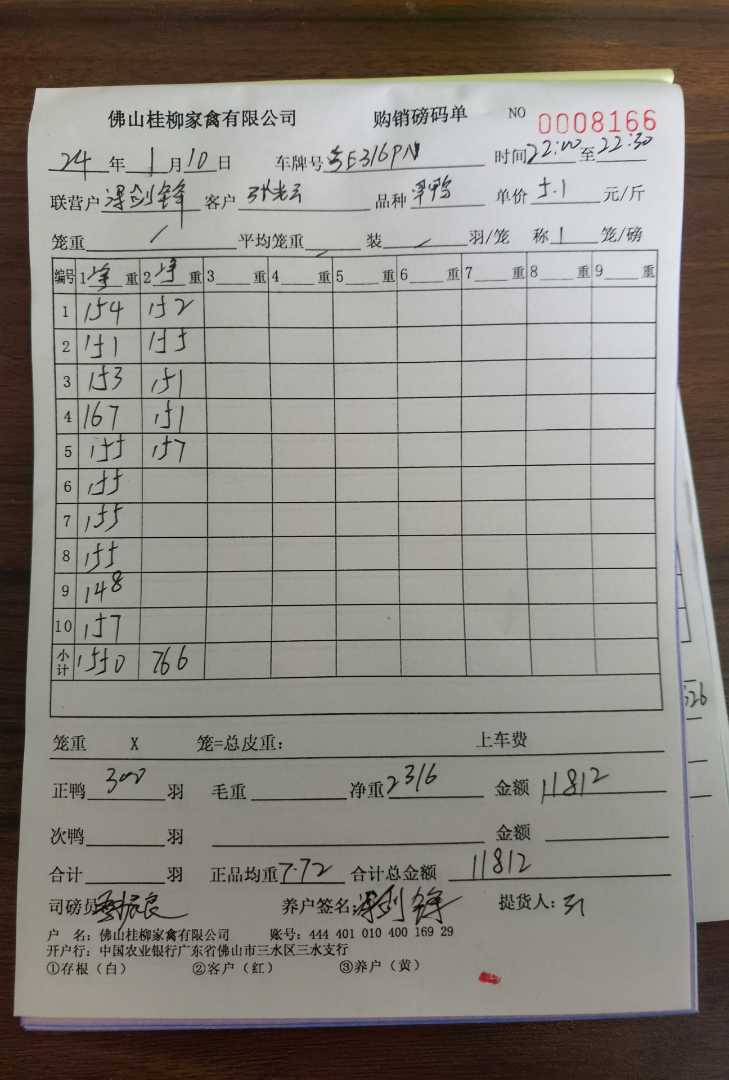 佛山桂柳家禽有限公司 购销磅码单 NO 0008166
24 年 1 月 10 日 车牌号 粤E316PN 时间 22:00 至 22:30
联营户 谭剑锋 客户 张光云 品种 单价 5.1 元/斤
笼重 / 平均笼重 装 羽/笼 称 1 笼/磅
编号 1 净 重 2 净 重 3 重 4 重 5 重 6 重 7 重 8 重 9 重
1 154 152
2 151 155
3 153 151
4 167 151
5 155 157
6 155
7 155
8 155
9 148
10 157
小计 1550 766
笼重 X 笼=总皮重: 上车费
正鸭 300 羽 毛重 净重 2316 金额 11812
次鸭 羽 金额
合计 羽 正品均重 7.72 合计总金额 11812
司磅员 养户签名: 谭剑锋 提货人:
户 名: 佛山桂柳家禽有限公司 账号: 444 401 010 400 169 29
开户行: 中国农业银行广东省佛山市三水区三水支行
①存根（白） ②客户（红） ③养户（黄）
526